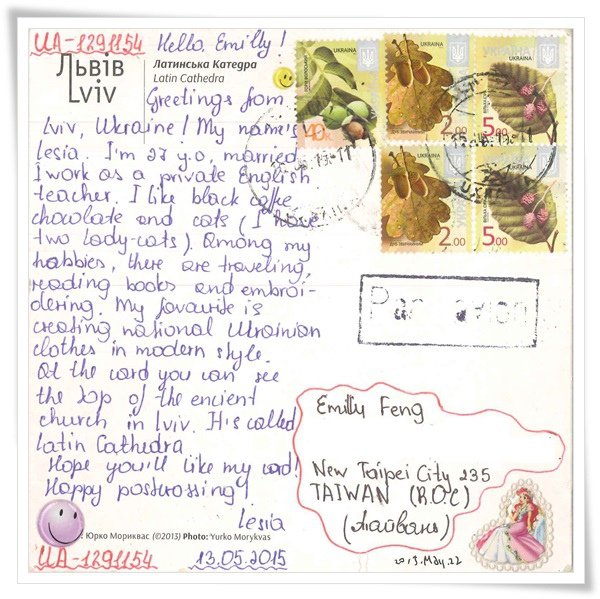 UA-1291154 Hello, Emilly!
Львів
Lviv
Латинська Катедра
Latin Cathedra
Greetings from
Lviv, Ukraine! My name's
Lesia. I'm 27 y.o., married
I work as a private English
teacher. I like black coffe
chocolate and cats (I have
two lady-cats). Among my
habbies, there are traveling,
reading books and embroi-
dering. My favourite is
creating national Ukrainian
clothes in modern style.
At the card you can see
the top of the encient
church in Lviv. It's called
Latin Cathedra
Hope you'll like my card!
Happy postcrossing!
Lesia
Юрко Мориквас (©2013) Photo: Yurko Morykvas
UA-1291154 13.05.2015
УКРАЇНА
УКРАЇНА 2.00
УКРАЇНА 5.00
УКРАЇНА 2.00
УКРАЇНА 5.00
Par avion
Emilly Feng
New Taipei City 235
TAIWAN (R.O.C)
(Тайвань)
2015.May.22